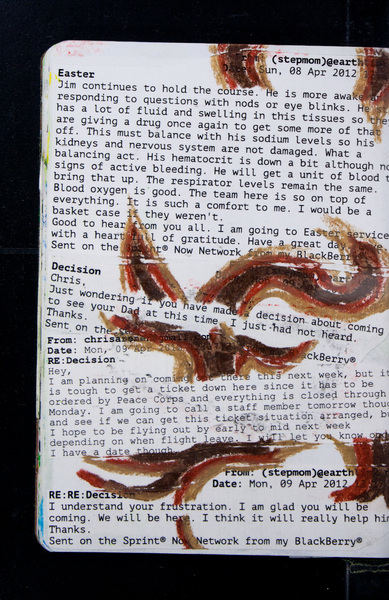 From: (stepmom)@earth
Date: Sun, 08 Apr 2012
Easter
Jim continues to hold the course. He is more awake
responding to questions with nods or eye blinks. He
has a lot of fluid and swelling in this tissues so they
are giving a drug once again to get some more of that
off. This must balance with his sodium levels so his
kidneys and nervous system are not damaged. What a
balancing act. His hematocrit is down a bit although no
signs of active bleeding. He will get a unit of blood
bring that up. The respirator levels remain the same.
Blood oxygen is good. The team here is so on top of
everything. It is such a comfort to me. I would be a
basket case if they weren't.
Good to hear from you all. I am going to Easter service
with a heart full of gratitude. Have a great day.
Sent on the Sprint® Now Network from my BlackBerry®
Decision
Chris,
Just wondering if you have made a decision about coming
to see your Dad at this time. I just had not heard.
Thanks.
Sent on the BlackBerry®
From:
Date: Mon, 09
RE:Decision
Hey,
I am planning on coming there this next week, but it
is tough to get a ticket down here since it has to be
ordered by Peace Corps and everything is closed through
Monday. I am going to call a staff member tomorrow though
and see if we can get this ticket situation arranged,
I hope to be flying out by early to mid next week
depending on when flight leave. I will let you know
I have a date though.
From: (stepmom)@earth
Date: Mon, 09 Apr 2012
RE:RE:Decision
I understand your frustration. I am glad you will be
coming. We will be here. I think it will really help
Thanks.
Sent on the Sprint® Now Network from my BlackBerry®